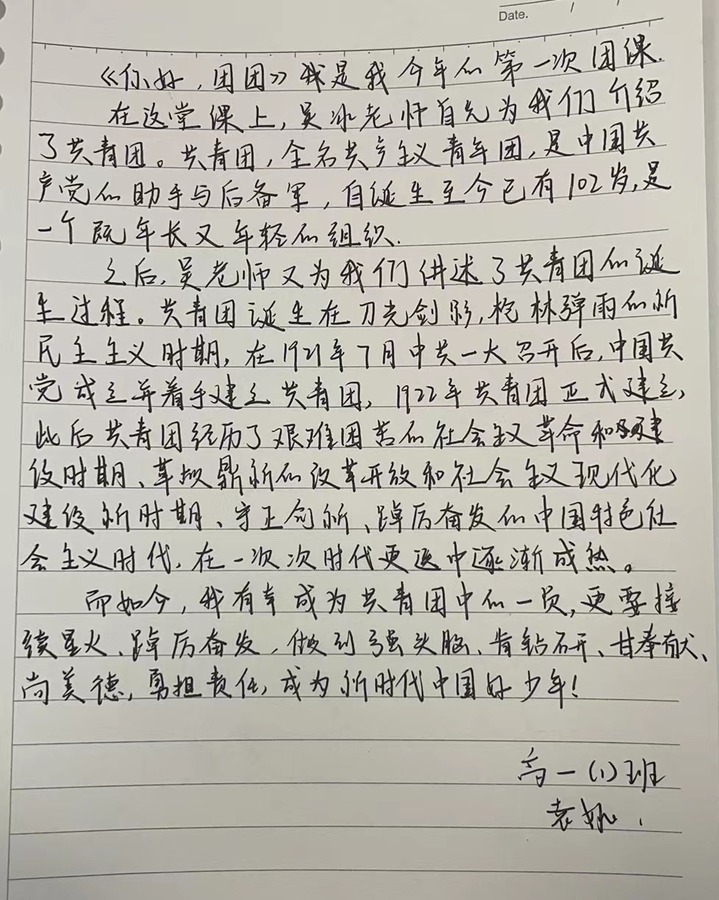 Date. / /
《你好，团团》我是我今年的第一次团课.
在这堂课上，吴冰老师首先为我们介绍
了共青团。共青团，全名共产主义青年团，是中国共
产党的助手与后备军，自诞生至今已有102岁，是
一个既年长又年轻的组织.
之后，吴老师又为我们讲述了共青团的诞
生过程。共青团诞生在刀光剑影，枪林弹雨的新
民主主义时期，在1921年7月中共一大召开后，中国共
党成立并着手建立共青团，1922年共青团正式建立，
此后共青团经历了艰难困苦的社会主义革命和建
设时期、革故鼎新的改革开放和社会主义现代化
建设新时期、守正创新、踔厉奋发的中国特色社
会主义时代，在一次次时代更迭中逐渐成熟。
而如今，我有幸成为共青团中的一员，更要接
续星火、踔厉奋发，做到强头脑、肯钻研、甘奉献、
尚美德，勇担责任，成为新时代中国好少年！
高一(1)班
袁